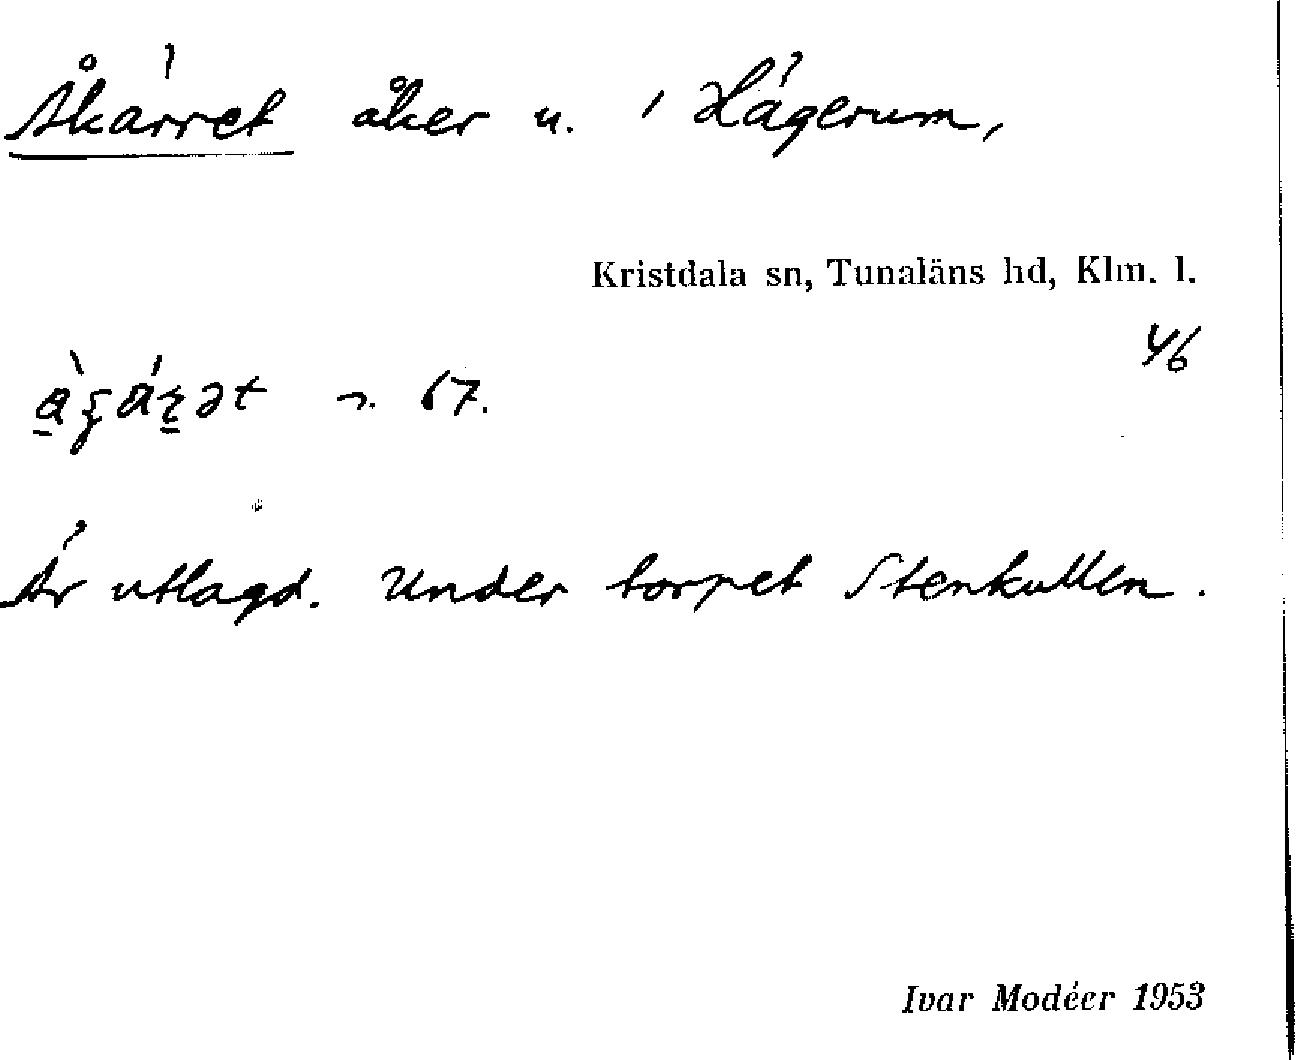 Åkärret åker u. i Hägerum,
Kristdala sn, Tunaläns hd, Klm. l.
4/6
67.
Är utlagd. Under torpet Stenkullen.
Ivar Modéer 1953